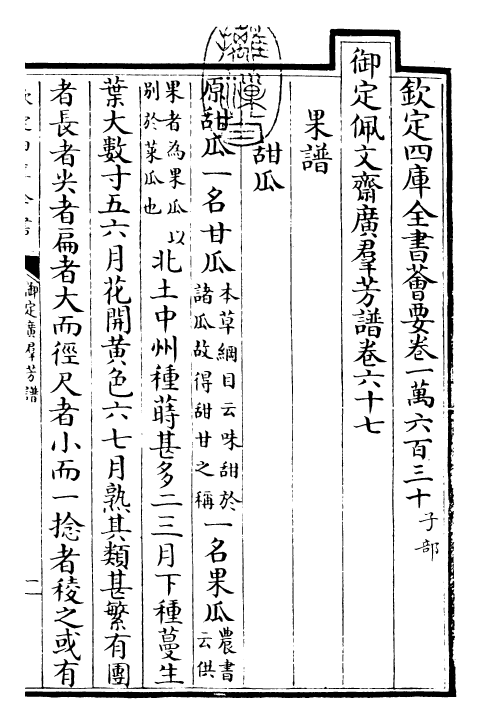 欽定四庫全書薈要卷一萬六百三十 子部
御定佩文齋廣羣芳譜卷六十七
果譜
甜瓜
原甜瓜一名甘瓜本草綱目云味甜於諸瓜故得甜甘之稱一名果瓜農書云供
果者為果瓜以別於菜瓜也北土中州種蒔甚多二三月下種蔓生
葉大數寸五六月花開黃色六七月熟其類甚繁有團
者長者尖者扁者大而徑尺者小而一捻者稜之或有
御定廣羣芳譜
一